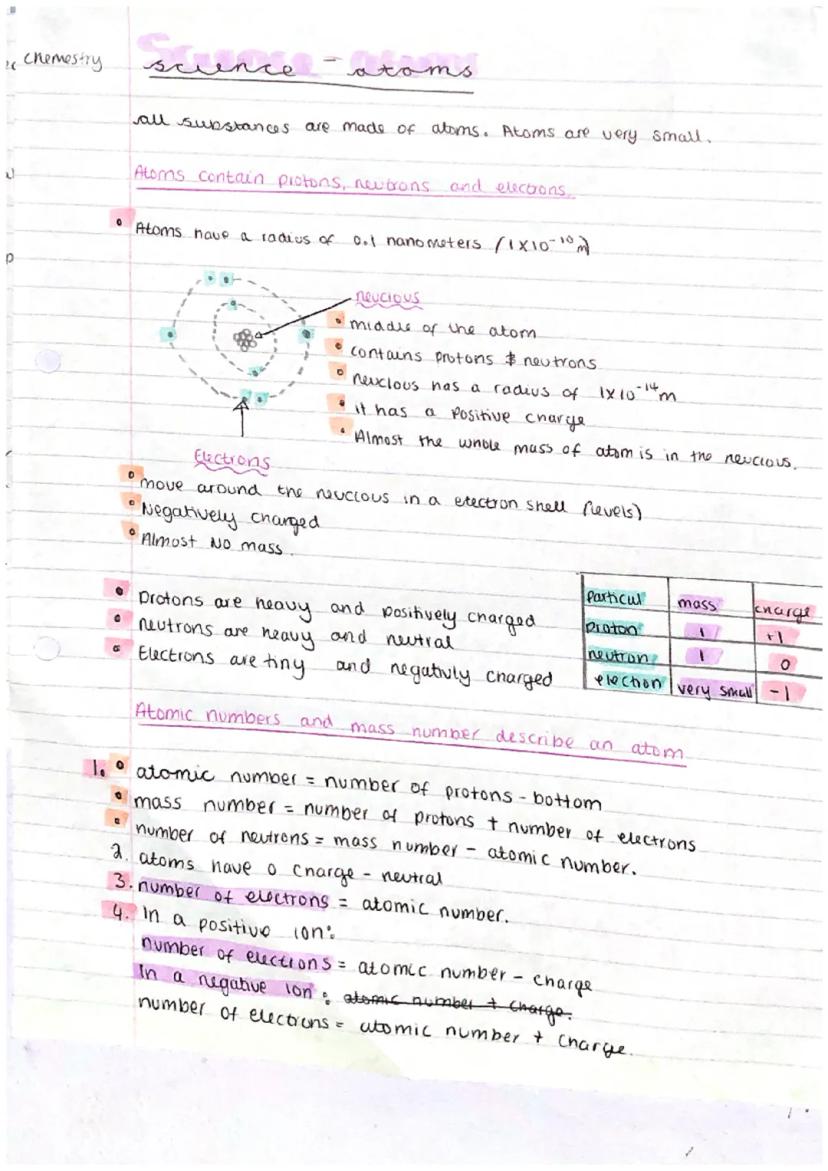 chemestry
science - atoms
all substances are made of atoms. Atoms are very small.
Atoms contain protons, neutrons and electrons.
Atoms have a radius of 0.1 nanometers (1x10⁻¹⁰m)
neucious
middle of the atom
contains protons & neutrons
neucious has a radius of 1x10⁻¹⁴m
it has a positive charge
Almost the whole mass of atom is in the neucious.
Electrons
move around the neucious in a electron shell (levels)
Negatively charged
Almost NO mass.
protons are heavy and positively charged
neutrons are heavy and neutral
Electrons are tiny and negativly charged
particul mass charge
proton 1 +1
neutron 1 0
election very small -1
Atomic numbers and mass number describe an atom
1. atomic number = number of protons - bottom
mass number = number of protons + number of electrons
number of neutrons = mass number - atomic number.
2. atoms have 0 charge - neutral
3. number of electrons = atomic number.
4. In a positive ion:
number of electrons = atomic number - charge
In a negative ion: atomic number + charge.
number of electrons = atomic number + charge.